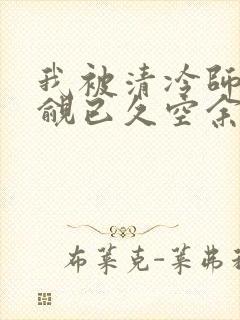 我被清冷师
觎已久空余
布莱克-莱弗